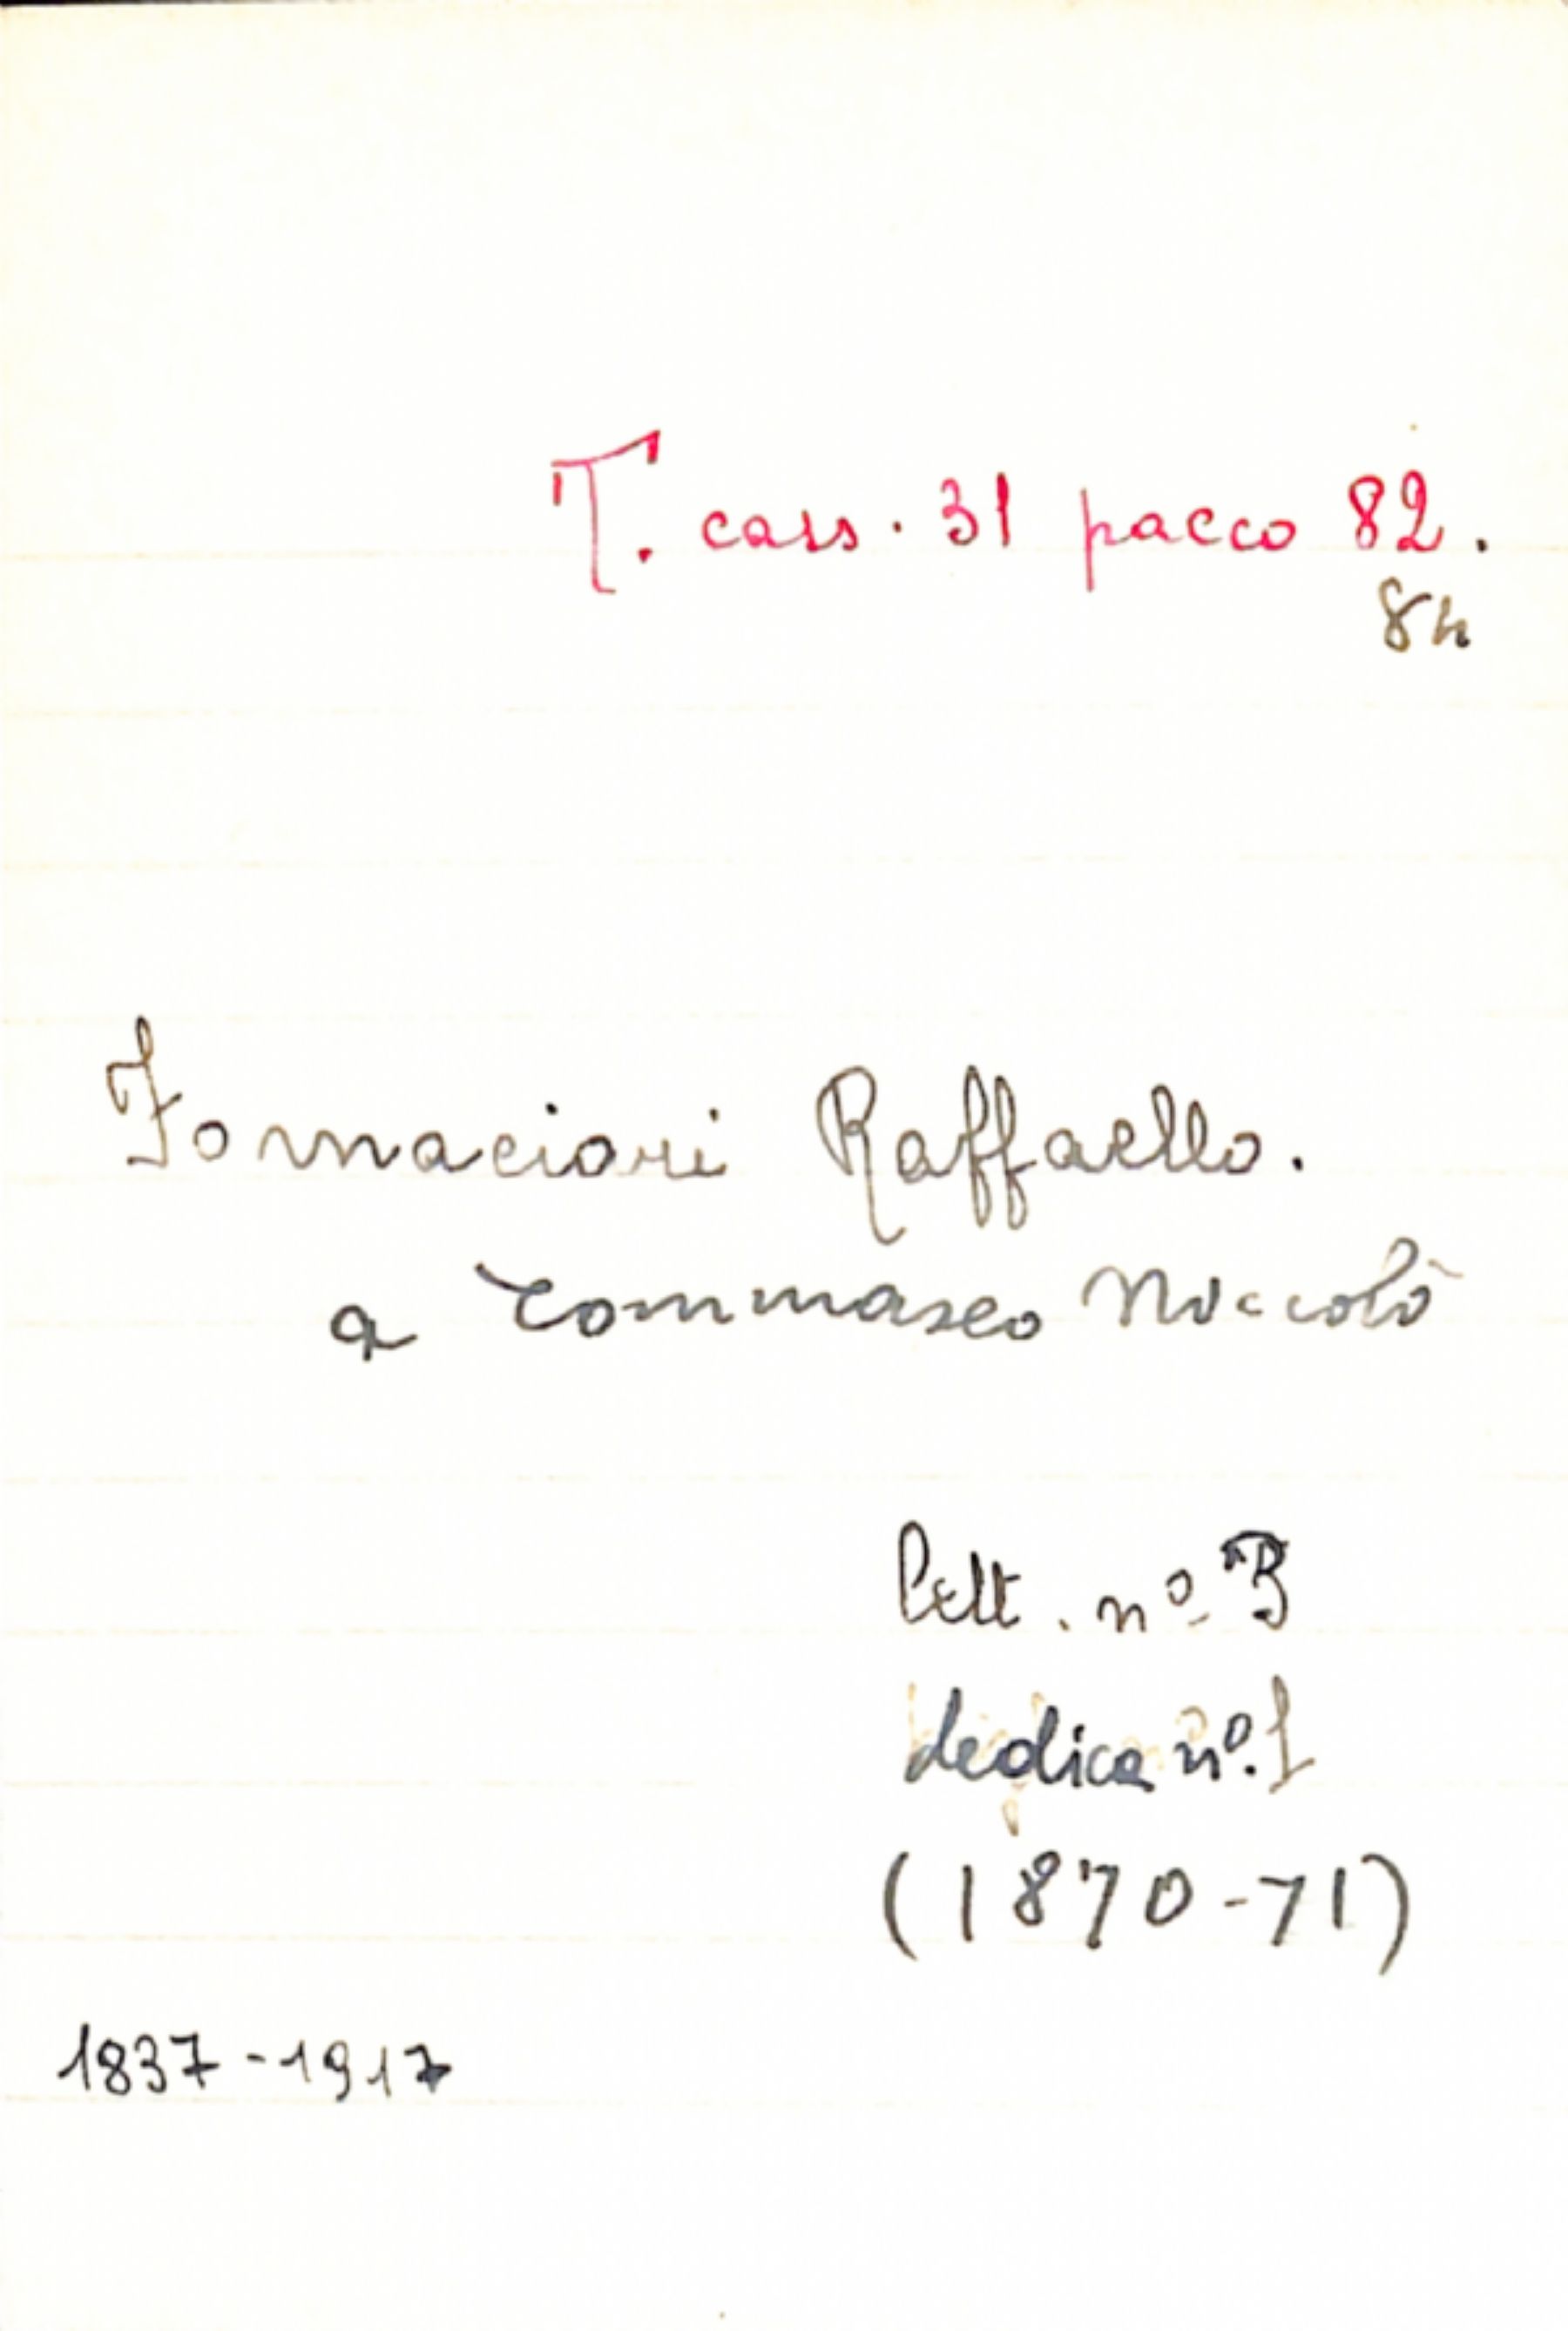 T. cass. 31 pacco 82.
84
Fornaciari Raffaello.
a Tommaseo Niccolò
Lett. nº 3
dedica nº. 1
(1870-71)
1837-1917